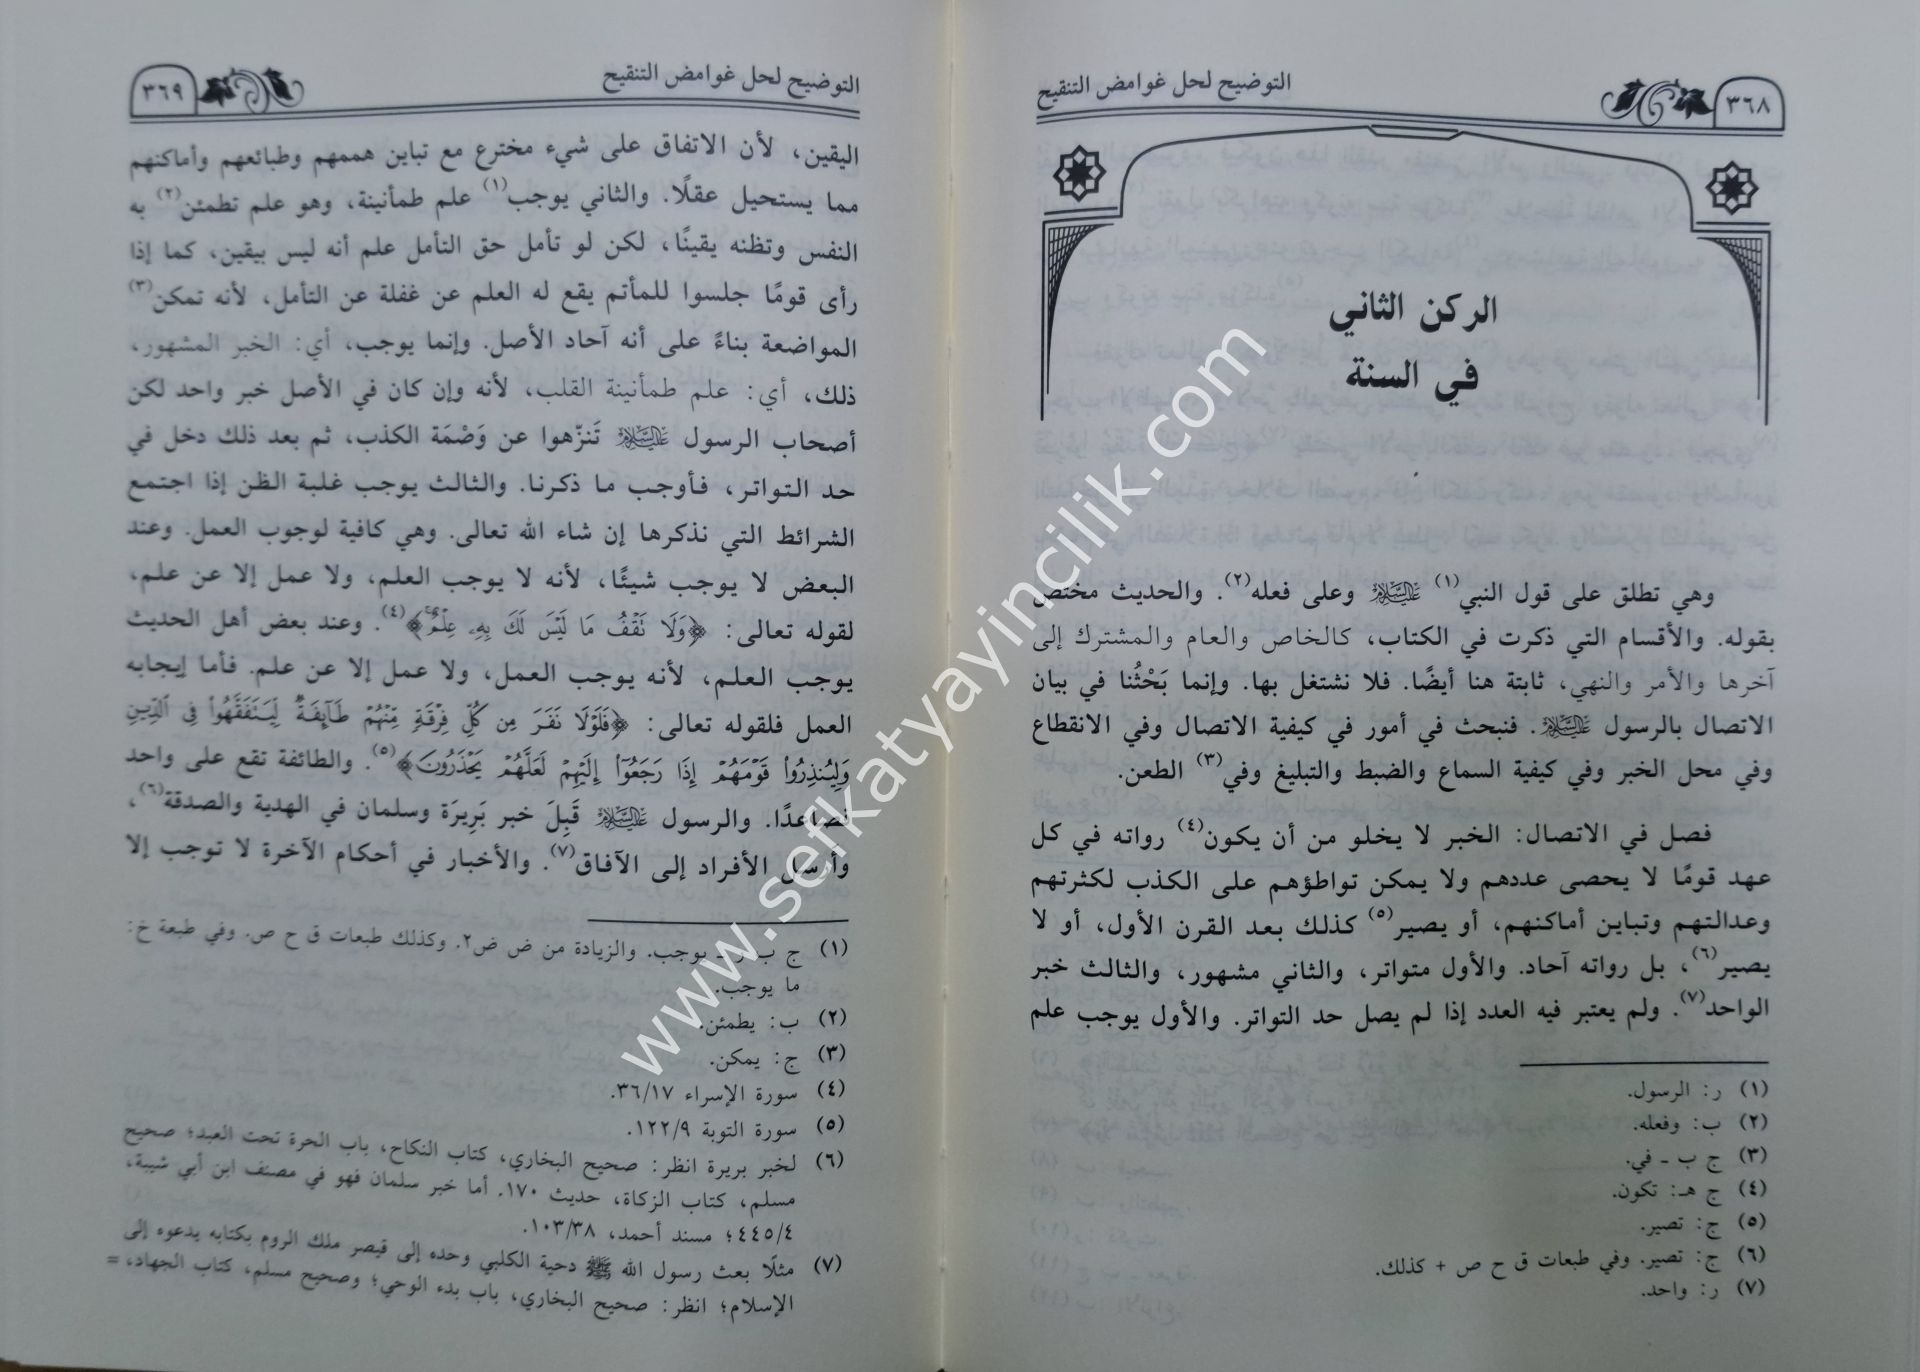 ٣٦٨
التوضيح لحل غوامض التنقيح
الركن الثاني
في السنة
وهي تطلق على قول النبي(١) عليه السلام وعلى فعله(٢). والحديث مختص
بقوله. والأقسام التي ذكرت في الكتاب، كالخاص والعام والمشترك إلى
آخرها والأمر والنهي، ثابتة هنا أيضًا. فلا نشتغل بها. وإنما بَحْثُنا في بيان
الاتصال بالرسول عليه السلام. فنبحث في أمور في كيفية الاتصال وفي الانقطاع
وفي محل الخبر وفي كيفية السماع والضبط والتبليغ وفي(٣) الطعن.
فصل في الاتصال: الخبر لا يخلو من أن يكون(٤) رواته في كل
عهد قومًا لا يحصى عددهم ولا يمكن تواطؤهم على الكذب لكثرتهم
وعدالتهم وتباين أماكنهم، أو يصير(٥) كذلك بعد القرن الأول، أو لا
يصير(٦)، بل رواته آحاد. والأول متواتر، والثاني مشهور، والثالث خبر
الواحد(٧). ولم يعتبر فيه العدد إذا لم يصل حد التواتر. والأول يوجب علم
(١) ر: الرسول.
(٢) ب: وفعله.
(٣) ج ب ـ في.
(٤) ج هـ: تكون.
(٥) ج: تصير.
(٦) ج: تصير. وفي طبعات ق ح ص + كذلك.
(٧) ر: واحد.
٣٦٩
التوضيح لحل غوامض التنقيح
اليقين، لأن الاتفاق على شيء مخترع مع تباين هممهم وطبائعهم وأماكنهم
مما يستحيل عقلًا. والثاني يوجب(١) علم طمأنينة، وهو علم تطمئن(٢) به
النفس وتظنه يقينًا، لكن لو تأمل حق التأمل علم أنه ليس بيقين، كما إذا
رأى قومًا جلسوا للمأتم يقع له العلم عن غفلة عن التأمل، لأنه تمكن(٣)
المواضعة بناءً على أنه آحاد الأصل. وإنما يوجب، أي: الخبر المشهور،
ذلك، أي: علم طمأنينة القلب، لأنه وإن كان في الأصل خبر واحد لكن
أصحاب الرسول عليه السلام تَنزّهوا عن وَصْمَة الكذب، ثم بعد ذلك دخل في
حد التواتر، فأوجب ما ذكرنا. والثالث يوجب غلبة الظن إذا اجتمع
الشرائط التي نذكرها إن شاء الله تعالى. وهي كافية لوجوب العمل. وعند
البعض لا يوجب شيئًا، لأنه لا يوجب العلم، ولا عمل إلا عن علم،
لقوله تعالى: ﴿وَلَا تَقْفُ مَا لَيْسَ لَكَ بِهِ عِلْمٌ﴾(٤). وعند بعض أهل الحديث
يوجب العلم، لأنه يوجب العمل، ولا عمل إلا عن علم. فأما إيجابه
العمل فلقوله تعالى: ﴿فَلَوْلَا نَفَرَ مِن كُلِّ فِرْقَةٍ مِّنْهُمْ طَآئِفَةٌ لِّيَتَفَقَّهُواْ فِي ٱلدِّينِ
وَلِيُنذِرُواْ قَوْمَهُمْ إِذَا رَجَعُوٓاْ إِلَيْهِمْ لَعَلَّهُمْ يَحْذَرُونَ﴾(٥). والطائفة تقع على واحد
فصاعدًا. والرسول عليه السلام قَبِلَ خبر بَرِيرَة وسلمان في الهدية والصدقة(٦)،
وأرسل الأفراد إلى الآفاق(٧). والأخبار في أحكام الآخرة لا توجب إلا
(١) ج ب ر ـ يوجب. والزيادة من ض ض٢. وكذلك طبعات ق ح ص. وفي طبعة خ:
ما يوجب.
(٢) ب: يطمئن.
(٣) ج: يمكن.
(٤) سورة الإسراء ٣٦/١٧.
(٥) سورة التوبة ١٢٢/٩.
(٦) لخبر بريرة انظر: صحيح البخاري، كتاب النكاح، باب الحرة تحت العبد؛ صحيح
مسلم، كتاب الزكاة، حديث ١٧٠. أما خبر سلمان فهو في مصنف ابن أبي شيبة،
٤٤٥/٤؛ مسند أحمد، ١٠٣/٣٨.
(٧) مثلًا بعث رسول الله ﷺ دحية الكلبي وحده إلى قيصر ملك الروم بكتابه يدعوه إلى
الإسلام؛ انظر: صحيح البخاري، باب بدء الوحي؛ وصحيح مسلم، كتاب الجهاد، =
www.sefkatyayincilik.com